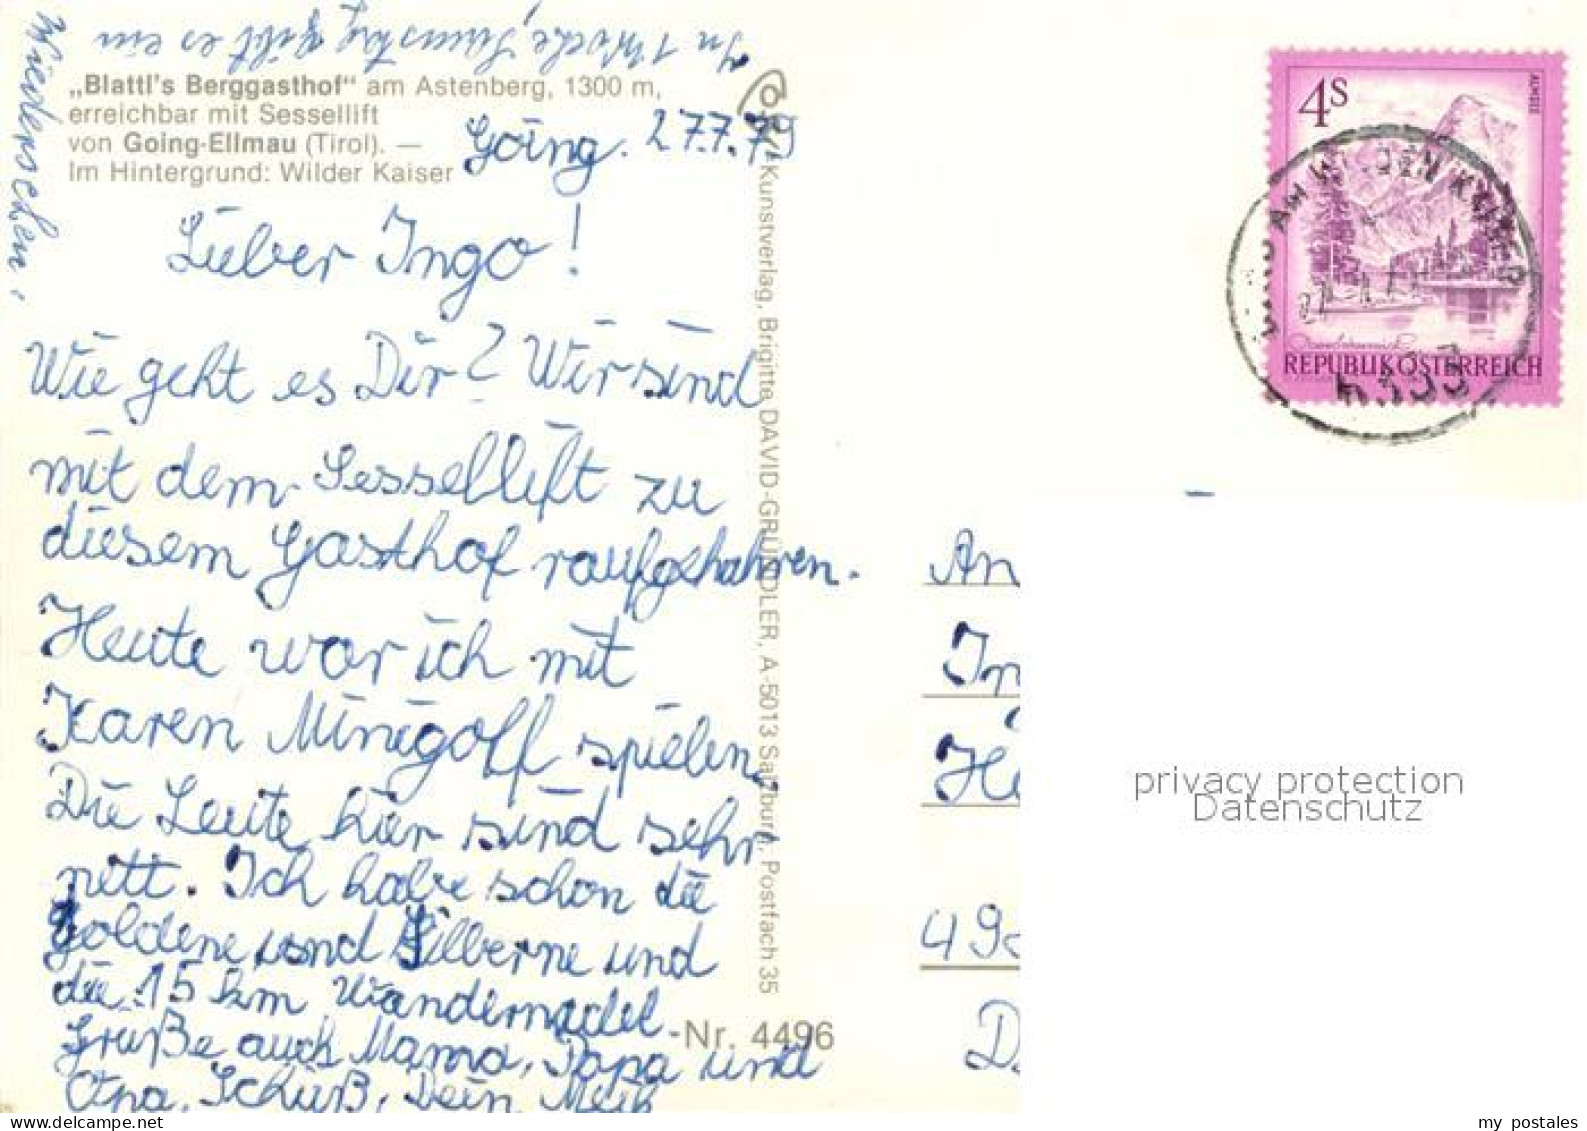 „Blattl's Berggasthof" am Astenberg, 1300 m,
erreichbar mit Sessellift
von Going-Ellmau (Tirol). —
Im Hintergrund: Wilder Kaiser
Going. 27.7.79
Lieber Ingo!
Wie geht es Dir? Wir sind
mit dem Sessellift zu
diesem Gasthof raufgefahren.
Heute war ich mit
Karen Minigolf spielen.
Die Leute hier sind sehr
nett. Ich habe schon die
Goldene und Silberne und
die 15 km Wandernadel.
Grüße auch Mama, Papa und
Opa. Schüß, Dein Meik
In 1 Woche, Samstag gibt es ein
Wiedersehen.
Kunstverlag, Brigitte DAVID-GRÜNDLER, A-5013 Salzburg, Postfach 35
Nr. 4496
4S
ALMSEE
REPUBLIK ÖSTERREICH
AM WILDEN KAISER
An
In
He
490
D
privacy protection
Datenschutz
www.delcampe.net
my postales